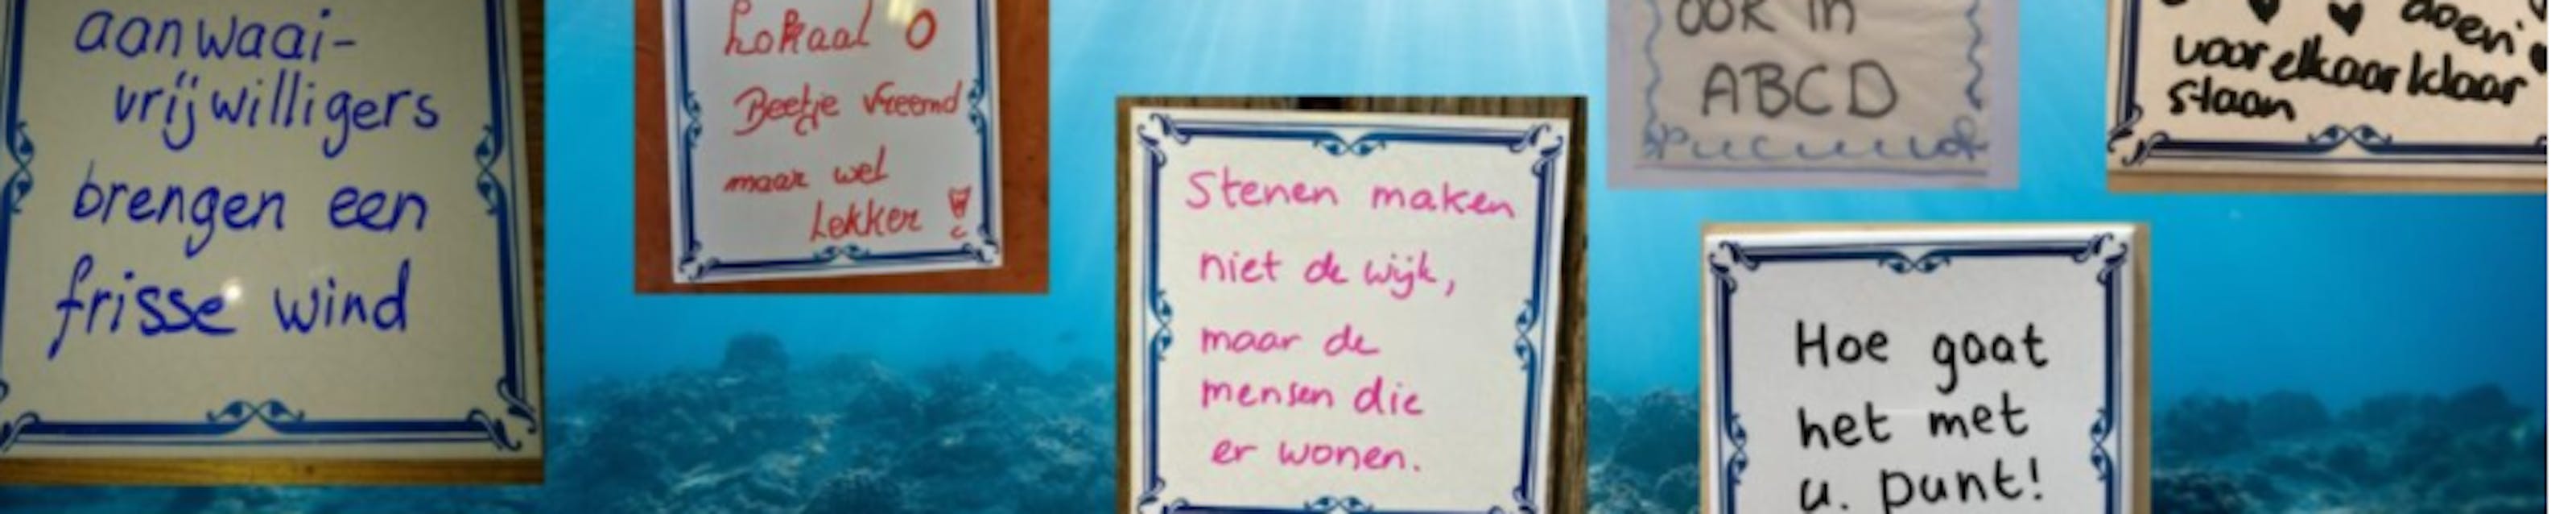 aanwaai-
vrijwilligers
brengen een
frisse wind
Lokaal O
Beetje vreemd
maar wel
Lekker !
Stenen maken
niet de wijk,
maar de
mensen die
er wonen.
ook in
ABCD
doen
voor elkaar klaar
staan
Hoe gaat
het met
u. punt!